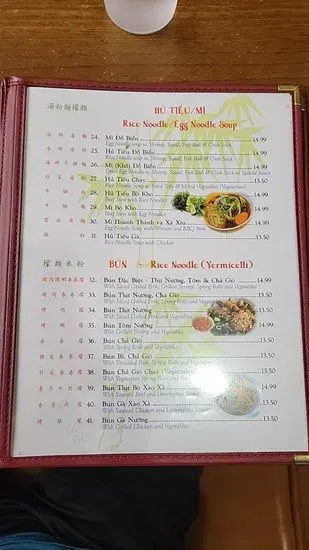 湯粉麵檬類 HỦ TIẾU/MÌ
Rice Noodle/Egg Noodle Soup
海鮮湯麵 24. Mì Đồ Biển 14.99
Egg Noodle soup w. Shrimp, Squid, Fish Ball & Crab Stick
海鮮湯粉 25. Hủ Tiếu Đồ Biển 14.99
Rice Noodle soup w. Shrimp, Squid, Fish Ball & Crab Stick
26. Mì (Khô) Đồ Biển 14.99
Dried Egg Noodle w. Shrimp, Squid, Fish Ball & Crab Stick w. Special Sauce
27. Hủ Tiếu Chay 13.50
Rice Noodle Soup w. Fried Tofu & Mixed Vegetables (Vegetarian)
28. Hủ Tiếu Bò Kho 14.99
Beef Stew with Rice Noodles
29. Mì Bò Kho 14.99
Beef Stew with Egg Noodles
30. Mì Hoành Thánh và Xá Xíu 14.99
Egg Noodle soup with Wonton and BBQ Pork
31. Hủ Tiếu Gà 13.50
Rice Noodle Soup with Chicken
檬類米粉 BÚN - Rice Noodle (Vermicelli)
32. Bún Đặc Biệt - Thịt Nướng, Tôm & Chả Giò 14.99
With Sliced Grilled Pork, Grilled Shrimp, Spring Rolls and Vegetables
33. Bún Thịt Nướng, Chả Giò 13.50
With Sliced Grilled Pork, Spring Rolls and Vegetables
34. Bún Thịt Nướng 13.50
With Sliced Grilled Pork and Vegetables
35. Bún Tôm Nướng 13.50
With Grilled Shrimp and Vegetables
36. Bún Chả Giò 13.50
With Spring Rolls and Vegetables
37. Bún Bì, Chả Giò 13.50
With Shredded Pork, Spring Rolls and Vegetables
38. Bún Chả Giò Chay (Vegetarian) 13.50
With Vegetarian Spring Rolls and Vegetables
39. Bún Thịt Bò Xào Xả 14.99
With Sauteed Beef and Lemongrass
40. Bún Gà Xào Xả 13.50
With Sauteed Chicken and Lemongrass
41. Bún Gà Nướng 13.50
With Grilled Chicken and Vegetables